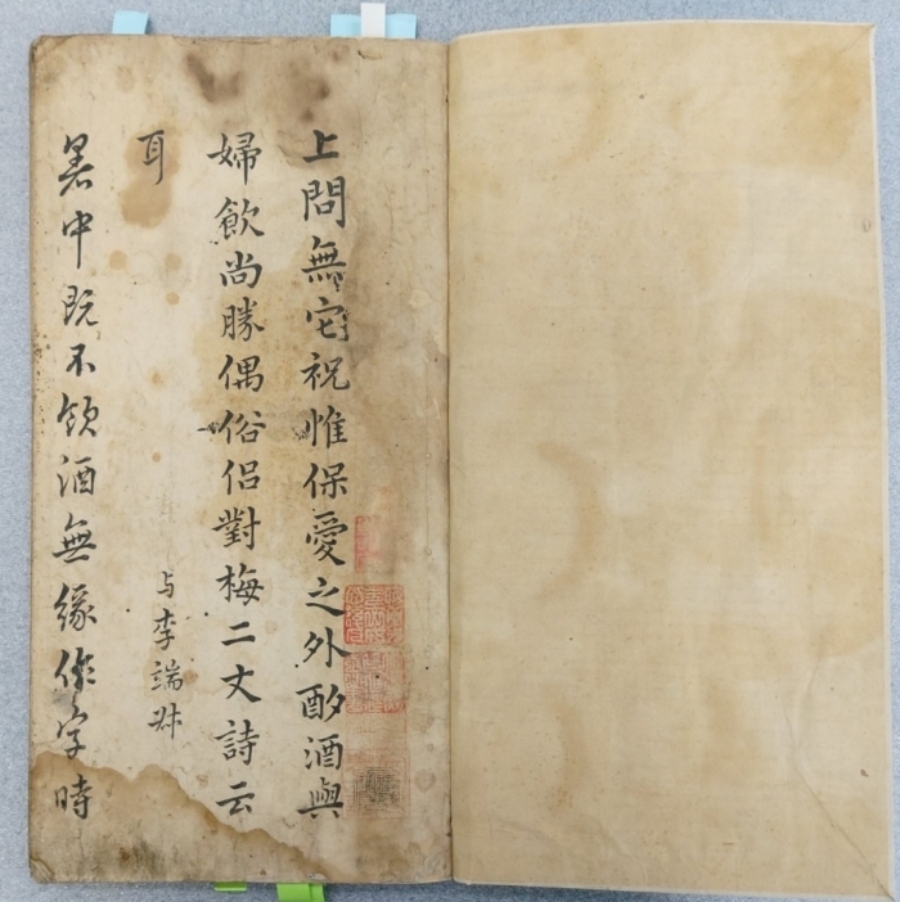 上問無它祝惟保愛之外酌酒與
婦飲尚勝偶俗侣對梅二丈詩云
耳
与李端叔
暑中既不飲酒無緣作字時